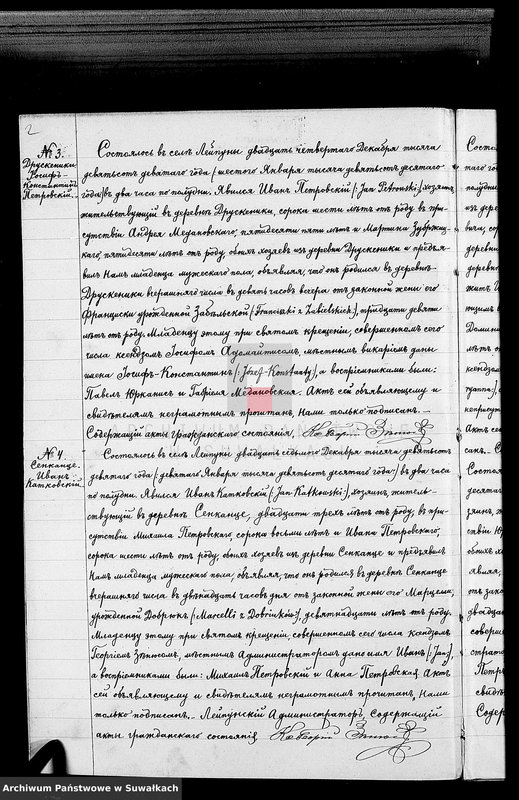 2
№ 3.
Друскеники
Іосифъ-
Константинъ
Петровскій.
Состоялось въ селѣ Лейпуны двадцать четвертаго Декабря тысяча
девятьсотъ девятаго года (шестого Января тысяча девятьсотъ десятаго
года) въ два часа по полудни. Явился Иванъ Петровскій (: Jan Petrowski:) хозяинъ,
жительствующій въ деревнѣ Друскеники, сорока шести лѣтъ отъ роду въ при-
сутствіи Андрея Медановскаго, пятидесяти пяти лѣтъ и Мартина
пятидесяти лѣтъ отъ роду, обоихъ хозяевъ изъ деревни Друскеники и предъя-
вилъ Намъ младенца мужескаго пола, объявляя, что онъ родился въ деревнѣ
Друскеники вчерашняго числа въ девять часовъ вечера отъ законной жены его
Францишки урожденной Забѣльской (: Franciszki z Zabielskich:), тридцати девяти
лѣтъ отъ роду. Младенцу этому при святомъ крещеніи, совершенномъ сего
числа ксендзомъ Іосифомъ Адомайтисомъ, мѣстнымъ викаріемъ даны
имена Іосифъ-Константинъ (: Józef-Konstanty:), а воспріемниками были:
Павелъ Юркянисъ и Габріеля Медановская. Актъ сей объявляющему и
свидѣтелямъ неграмотнымъ прочитанъ, Нами только подписанъ. —
Содержащій акты гражданскаго состоянія,
№ 4.
Сенканце.
Иванъ
Катковскій
Состоялось въ селѣ Лейпуны двадцать седьмого Декабря тысяча девятьсотъ
девятаго года (: девятаго Января тысяча девятьсотъ десятаго года:) въ два часа
по полудни. Явился Иванъ Катковскій (: Jan Katkowski:) хозяинъ, житель-
ствующій въ деревнѣ Сенканце, двадцати трехъ лѣтъ отъ роду, въ при-
сутствіи Михаила Петровскаго, сорока восьми лѣтъ и Ивана Петровскаго,
сорока шести лѣтъ отъ роду, обоихъ хозяевъ изъ деревни Сенканце и предъявилъ
Намъ младенца мужескаго пола, объявляя, что онъ родился въ деревнѣ Сенканце
вчерашняго числа въ двѣнадцать часовъ дня отъ законной жены его Марцели,
урожденной Добрюкъ (: Marcelli z Dobriuków:), девятнадцати лѣтъ отъ роду.
Младенцу этому при святомъ крещеніи, совершенномъ сего числа ксендзомъ
Георгіемъ мѣстнымъ Администраторомъ дано имя Иванъ (: Jan:),
а воспріемниками были: Михаилъ Петровскій и Анна Петровская. Актъ
сей объявляющему и свидѣтелямъ неграмотнымъ прочитанъ, Нами
только подписанъ. — Лейпунскій Администраторъ, Содержащій
акты гражданскаго состоянія
Archiwum Państwowe w Suwałkach